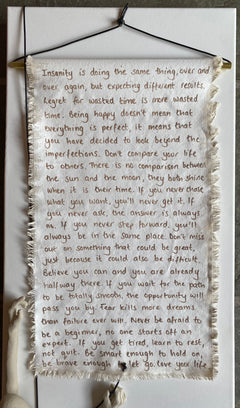 Insanity is doing the same thing, over and
over again, but expecting different results.
Regret for wasted time is more wasted
time. Being happy doesn't mean that
everything is perfect, it means that
you have decided to look beyond the
imperfections. Don't compare your life
to others. There is no comparison between
the sun and the moon, they both shine
when it is their time. If you never chase
what you want, you'll never get it. If
you never ask, the answer is always
no. If you never step forward, you'll
always be in the same place. Don't miss
out on something that could be great,
just because it could also be difficult.
Believe you can and you are already
halfway there. If you wait for the path
to be totally smooth, the opportunity will
pass you by. Fear kills more dreams
than failure ever will. Never be afraid to
be a beginner, no one starts off an
expert. If you get tired, learn to rest,
not quit. Be smart enough to hold on,
be brave enough let go. Love your life